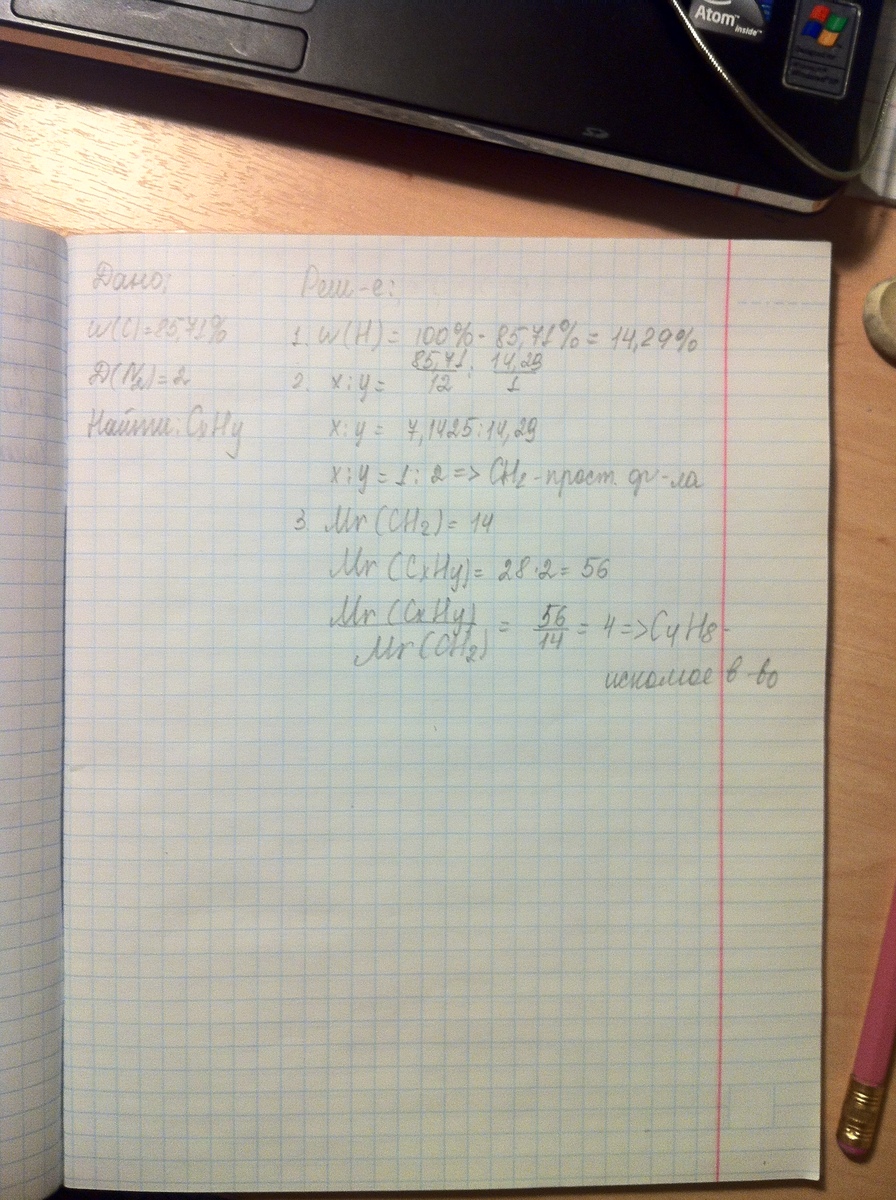 Atom™
inside™
Дано:
w(C)=85,71%
D(N₂)=2
Найти: CxHy
Реш-е:
1. w(H) = 100% - 85,71% = 14,29%
2. x:y = 85,71/12 : 14,29/1
x:y = 7,1425:14,29
x:y = 1:2 => CH₂ - прост. ф-ла
3. Mr(CH₂) = 14
Mr(CxHy) = 28·2 = 56
Mr(CxHy)/Mr(CH₂) = 56/14 = 4 => C₄H₈ -
искомое в-во